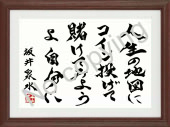 人生の地図に
コイン投げて
賭けてみよう
よ自分に
坂井泉水
no copying